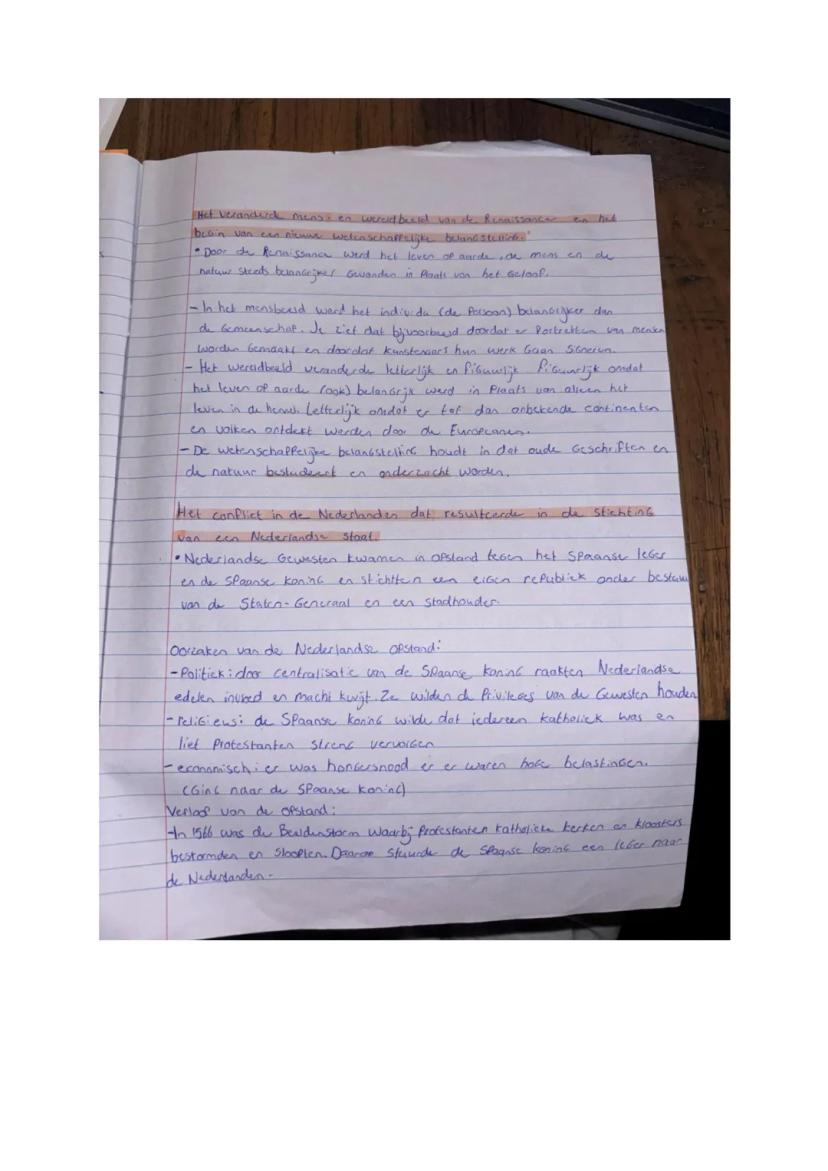 Het veranderde mens- en wereldbeeld van de Renaissance en het
begin van een nieuwe wetenschappelijke belangstelling.
• Door de Renaissance werd het leven op aarde, de mens en de
natuur steeds belangrijker gevonden in Plaats van het Geloof.
- In het mensbeeld werd het individu (de Persoon) belangrijker dan
de Gemeenschap. Je ziet dat bijvoorbeeld doordat er Portretten van mensen
worden Gemaakt en doordat kunstenaars hun werk Gaan Signeren.
- Het wereldbeeld veranderde letterlijk en Figuurlijk. Figuurlijk omdat
het leven op aarde (ook) belangrijk werd in Plaats van alleen het
leven in de hemel. Letterlijk omdat er tot dan onbekende continenten
en volken ontdekt werden door de Europeanen.
- De wetenschappelijke belangstelling houdt in dat oude Geschriften en
de natuur bestudeert en onderzocht worden.
Het conflict in de Nederlanden dat resulteerde in de stichting
van een Nederlandse Staat.
• Nederlandse Gewesten kwamen in opstand tegen het Spaanse leger
en de Spaanse koning en stichtten een eigen republiek onder bestuur
van de Staten-Generaal en een stadhouder.
Oorzaken van de Nederlandse opstand:
- Politiek: door centralisatie van de Spaanse koning raakten Nederlandse
edelen invloed en macht kwijt. Ze wilden de Privileges van de Gewesten houden
- religieus: de Spaanse koning wilde dat iedereen katholiek was en
liet Protestanten streng vervolgen
- economisch: er was hongersnood er er waren hoge belastingen.
(Ging naar de Spaanse koning)
Verloop van de opstand:
- In 1566 was de Beeldenstorm waarbij Protestanten katholieke kerken en kloosters
bestormden en slooplen. Daarom stuurde de Spaanse koning een leger naar
de Nederlanden.